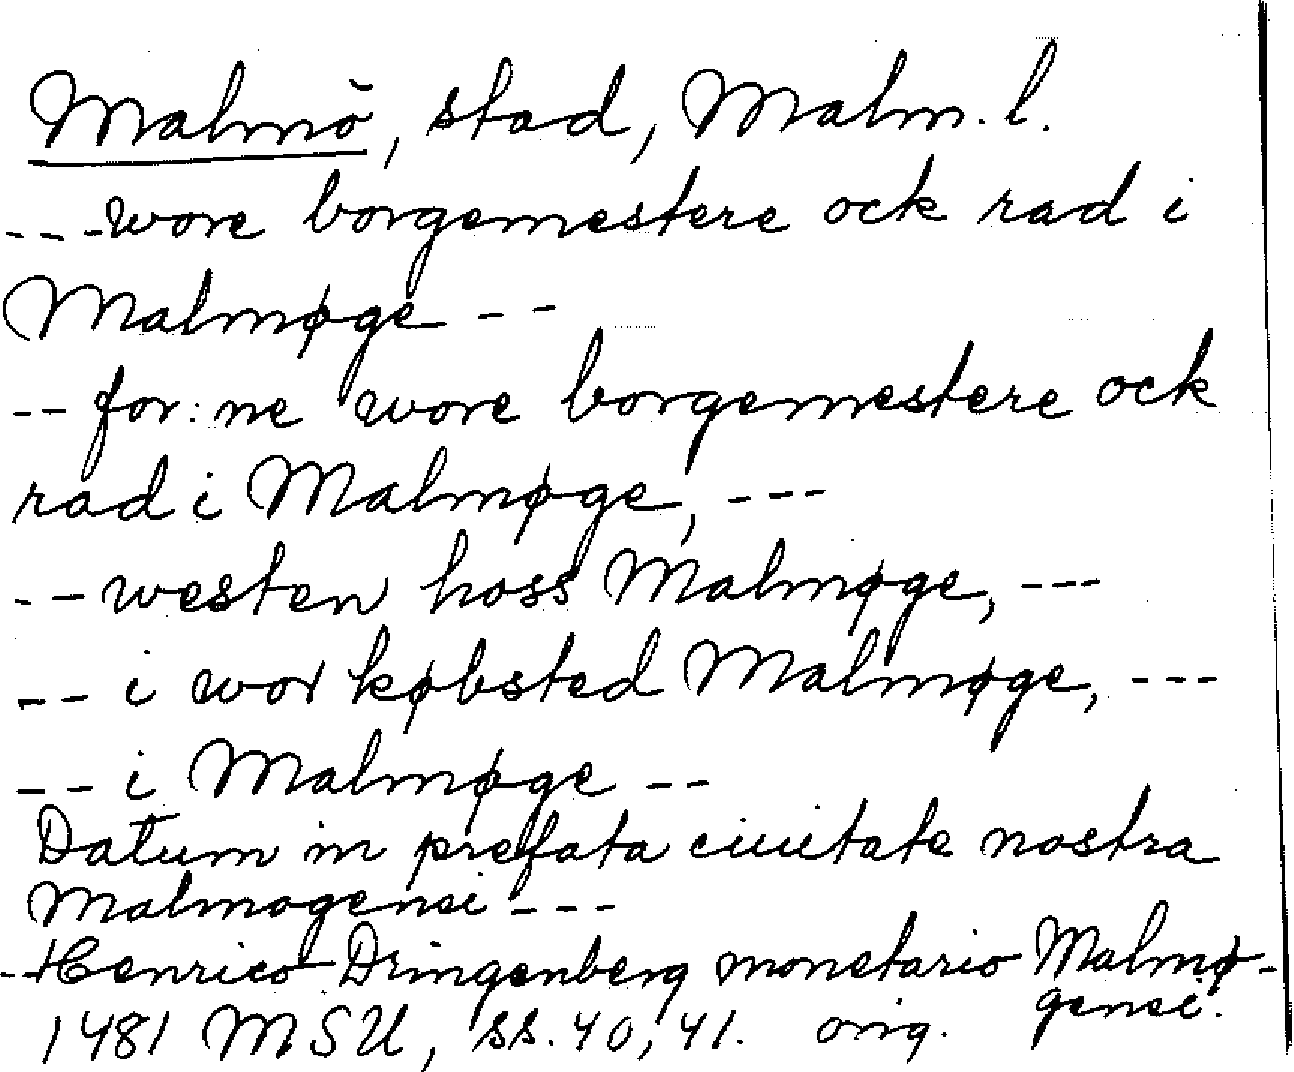 Malmö, stad, Malm. l.
---wore borgemestere ock rad i
Malmøge ---
-- for: ne wore borgemestere ock
rad i Malmøge, ---
-- westen hoss Malmøge, ---
-- i wor købsted Malmøge, ---
-- i Malmøge --
Datum in prefata ciuitate nostra
Malmogensi ---
--Henrico Dringenberg monetario Malmø-
gensi.
1481 MSU, ss. 40, 41. orig.